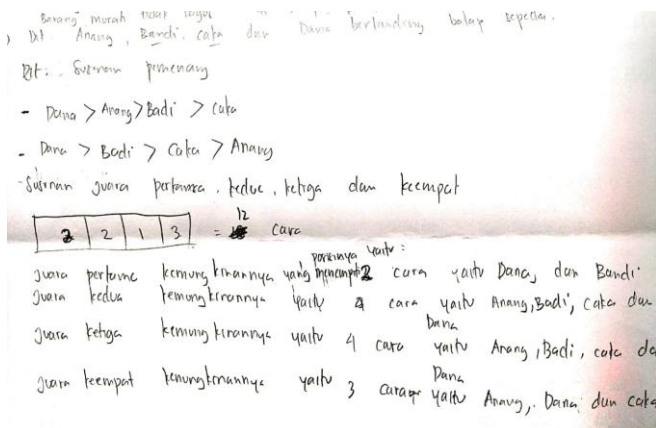 Barang murah tidak
) Dit: Anang, Bandi, caka dan Dana bertanding balap sepeda.
Dit: Susunan pemenang
- Dana > Anang > Badi > caka
- Dana > Badi > Caka > Anang
- Susunan juara pertama, kedua, ketiga dan keempat
2 | 2 | 1 | 3 = 12 cara
juara pertama kemungkinannya yang menempati posisinya yaitu: 2 cara yaitu Dana, dan Bandi
Juara kedua kemungkinannya yaitu 4 cara yaitu Anang, Badi, Caka dan Dana
Juara ketiga kemungkinannya yaitu 4 cara yaitu Anang, Badi, caka da Dana
Juara keempat kemungkinannya yaitu 3 cara yaitu Anang, Dana dan caka